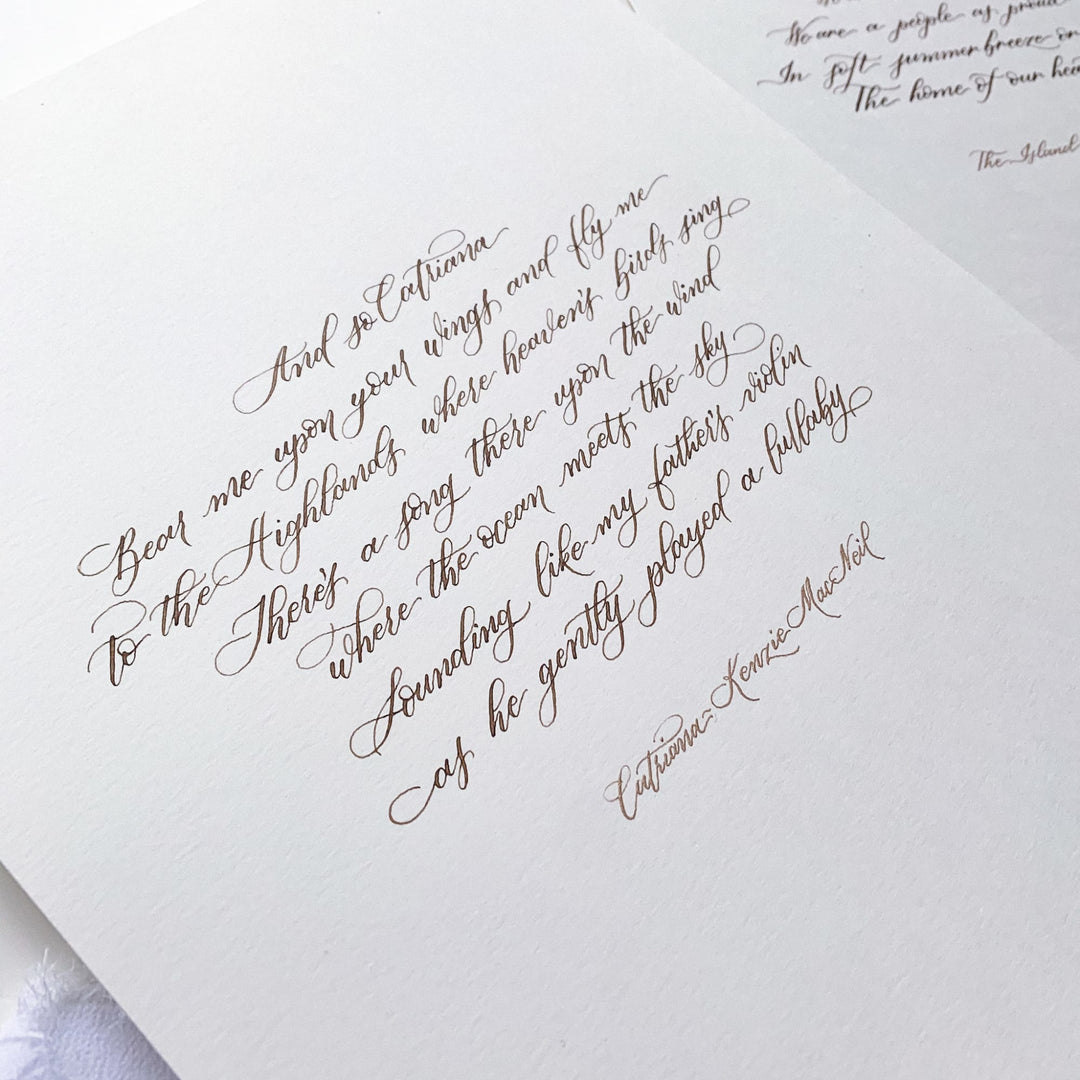 And so Catriana
Bear me upon your wings and fly me
to the Highlands where heaven's birds sing
There's a song there upon the wind
where the ocean meets the sky
Sounding like my father's violin
as he gently played a lullaby
Catriana - Kenzie MacNeil
We are a people as proud
In soft summer breeze or
The home of our
The Island